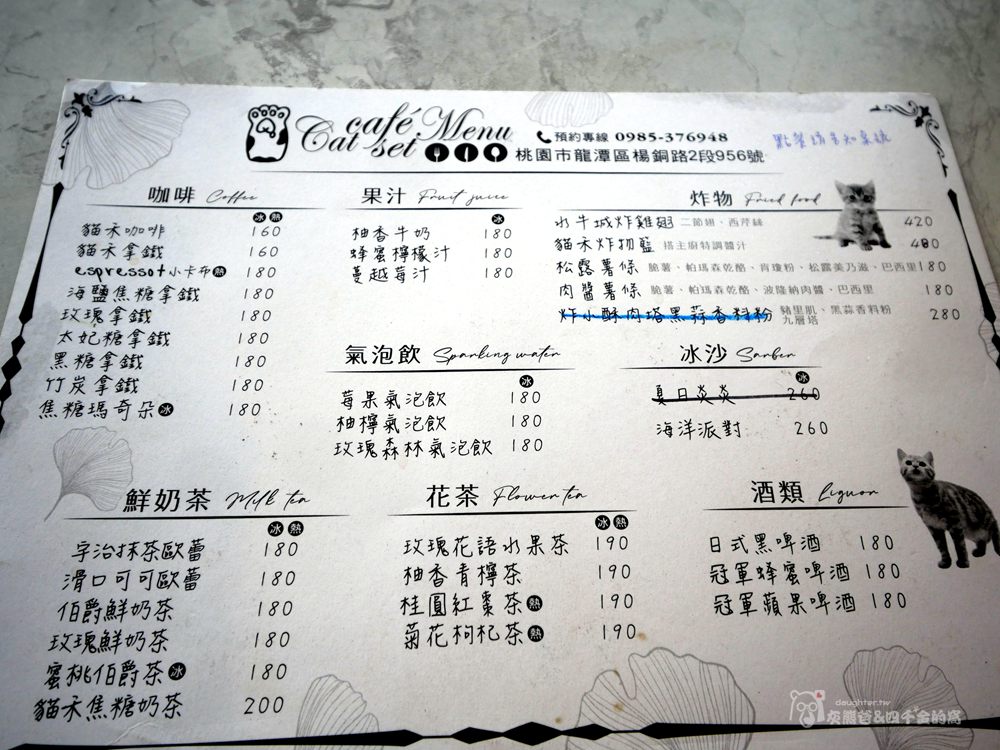 café Menu
Cat set
預約專線 0985-376948
桃園市龍潭區楊銅路2段956號
點餐請告知桌號
咖啡 Coffee
冰 熱
貓禾咖啡 160
貓禾拿鐵 160
espressot小卡布 熱 180
海鹽焦糖拿鐵 180
玫瑰拿鐵 180
太妃糖拿鐵 180
黑糖拿鐵 180
竹炭拿鐵 180
焦糖瑪奇朵 冰 180
果汁 Fruit juice
冰
柚香牛奶 180
蜂蜜檸檬汁 180
蔓越莓汁 180
炸物 Fried food
水牛城炸雞翅 二節翅、西芹絲 420
貓禾炸物籃 搭主廚特調醬汁 480
松露薯條 脆薯、帕瑪森乾酪、肯瓊粉、松露美乃滋、巴西里 180
肉醬薯條 脆薯、帕瑪森乾酪、波隆納肉醬、巴西里 180
炸小酥肉塔黑蒜香料粉 豬里肌、黑蒜香料粉 280
九層塔
氣泡飲 Sparking water
冰
莓果氣泡飲 180
柚檸氣泡飲 180
玫瑰森林氣泡飲 180
冰沙 Sarber
冰
夏日炎炎 260
海洋派對 260
鮮奶茶 Milk tea
冰 熱
宇治抹茶歐蕾 180
滑口可可歐蕾 180
伯爵鮮奶茶 180
玫瑰鮮奶茶 180
蜜桃伯爵茶 冰 180
貓禾焦糖奶茶 200
花茶 Flower tea
冰 熱
玫瑰花語水果茶 190
柚香青檸茶 190
桂圓紅棗茶 熱 190
菊花枸杞茶 熱 190
酒類 liquor
日式黑啤酒 180
冠軍蜂蜜啤酒 180
冠軍蘋果啤酒 180
daughter.tw
灰熊爸&四千金的窩